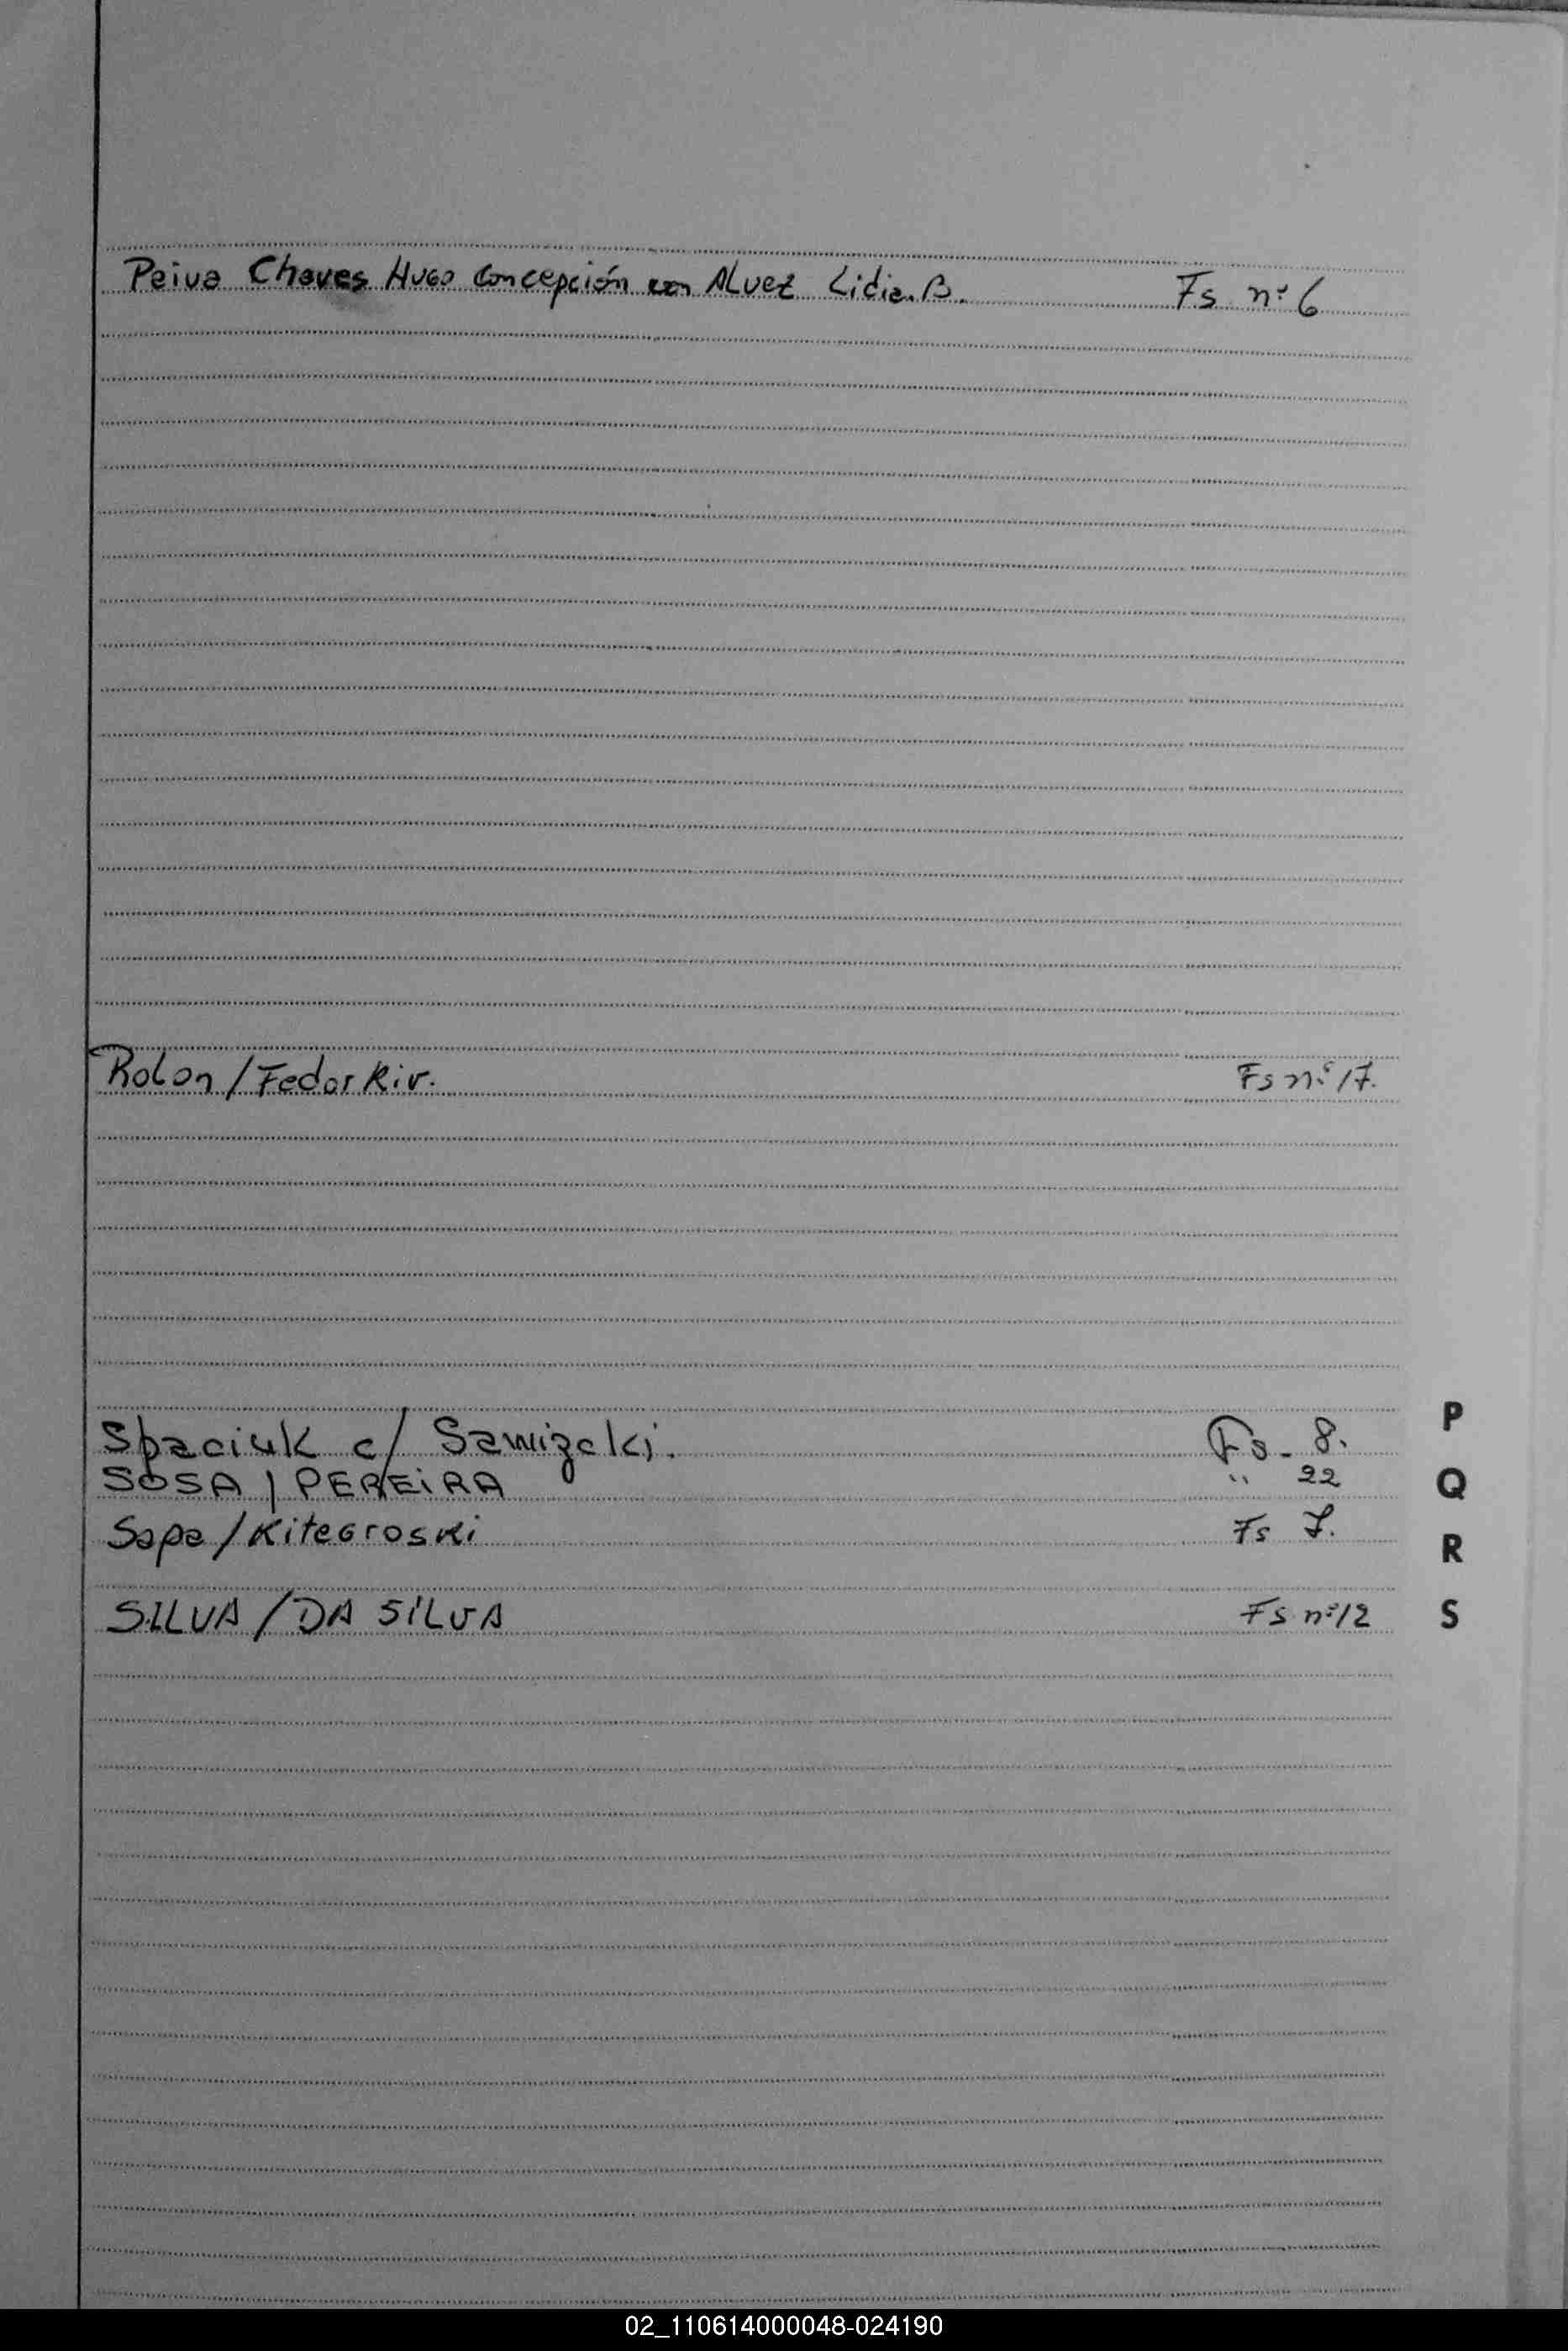 Peiva Chaves Hugo Concepción con Alvez Lidia B. Fs nº 6
Rolon / Fedorkiv. Fs nº 17.
Spaciuk c/ Szmizaki. Fs. 8.
SOSA / PEREIRA " 22
Sapa / Kitegroski Fs 7.
SILVA / DA SILVA Fs nº 12
P
Q
R
S
02_110614000048-024190